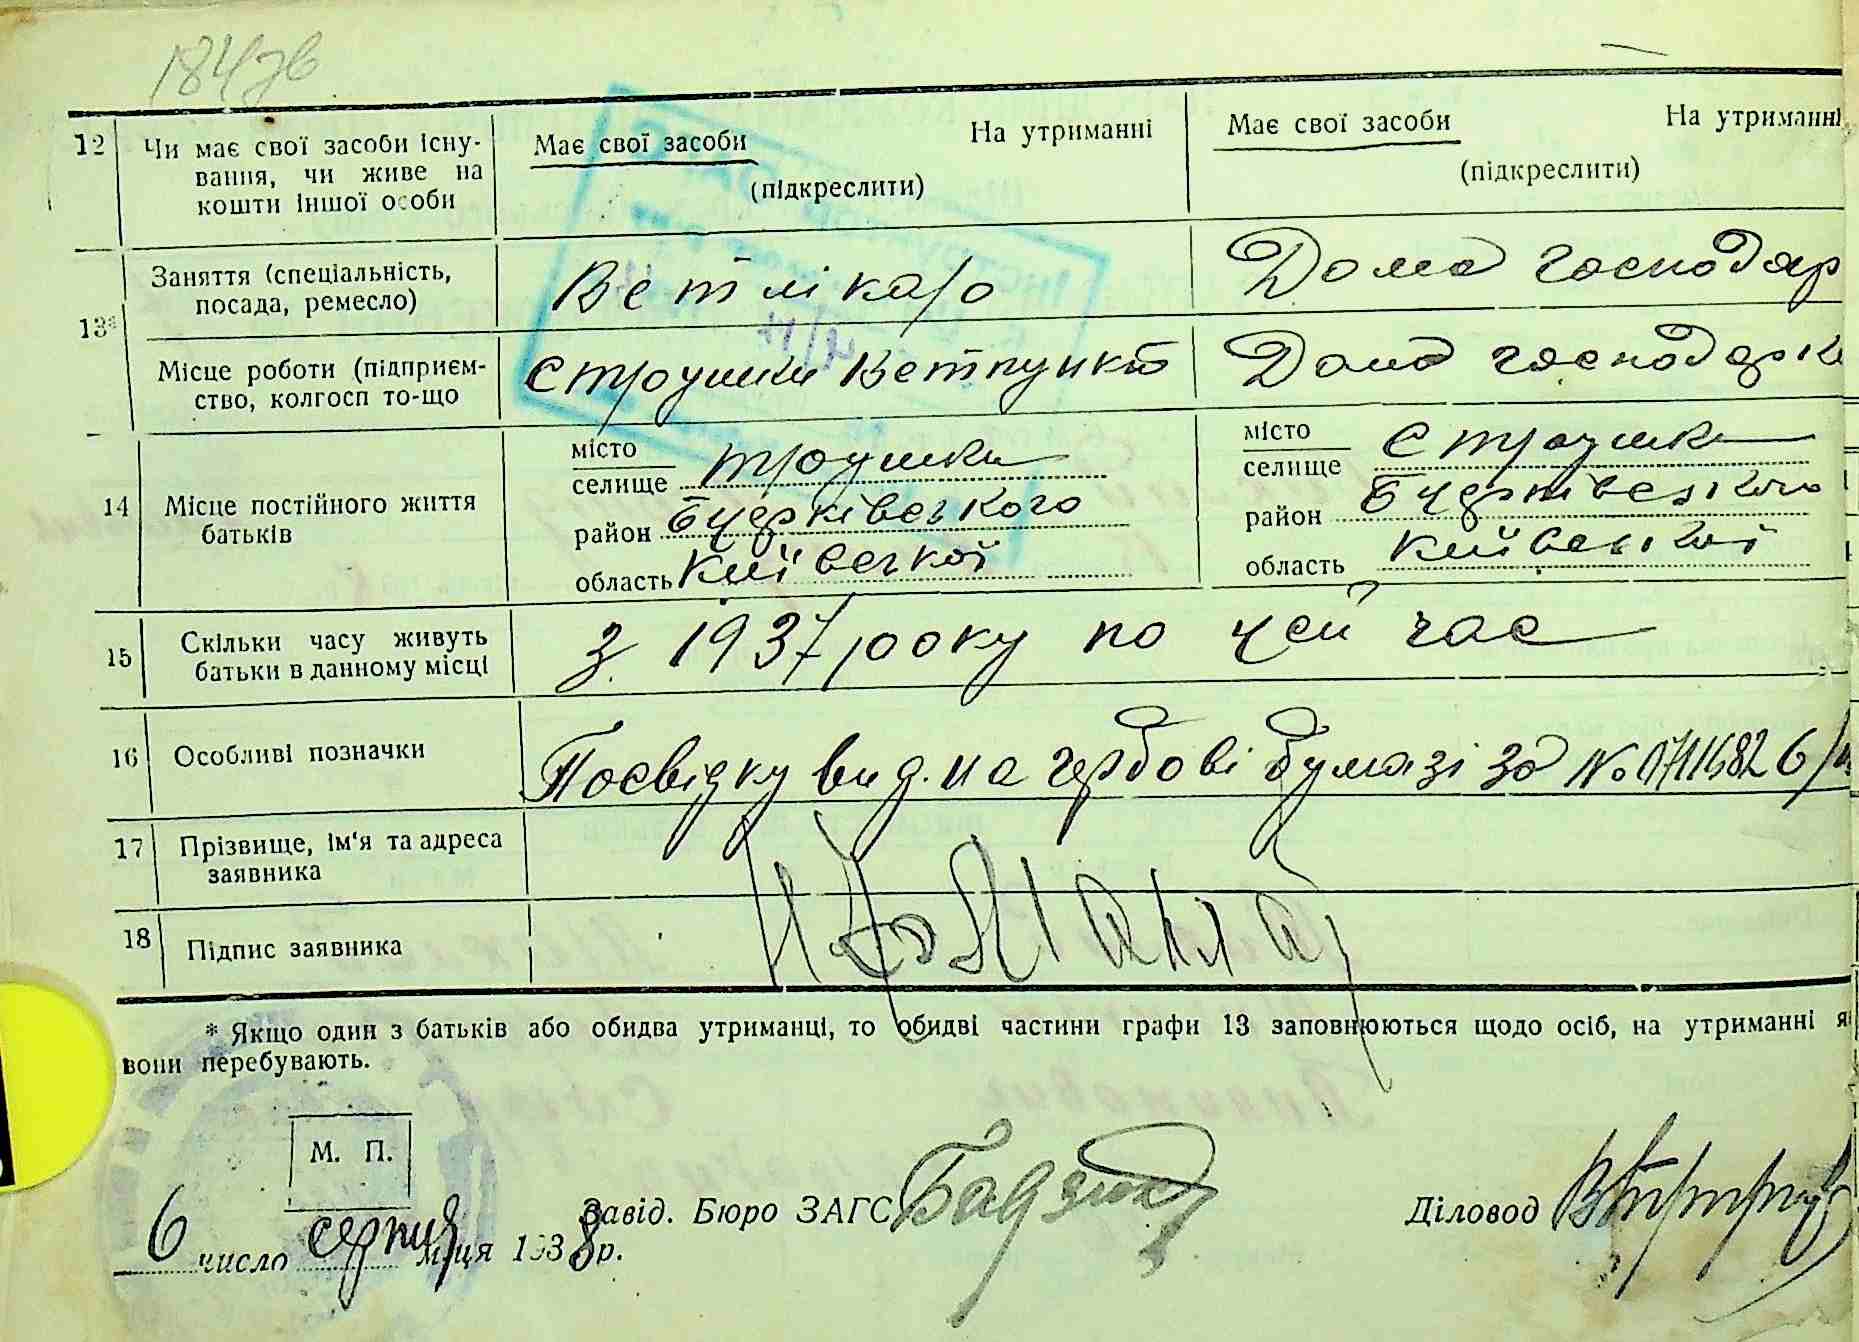 184зв
12 Чи має свої засоби існу-
вання, чи живе на
кошти іншої особи
Має свої засоби На утриманні
(підкреслити)
Має свої засоби На утриманні
(підкреслити)
13*
Заняття (спеціальність,
посада, ремесло)
Вет лікаро
Дома господар
Місце роботи (підприєм-
ство, колгосп то-що
Строушки Ветпункт
Дома господарк
14 Місце постійного життя
батьків
місто
селище троушки
район Бчерківського
область Київської
місто
селище Строушки
район Бчерківського
область Київської
15 Скільки часу живуть
батьки в данному місці
з 1937 року по цей час
16 Особливі позначки
Посвідку вид. на гербові бумазі за №
17 Прізвище, ім'я та адреса
заявника
18 Підпис заявника
* Якщо один з батьків або обидва утриманці, то обидві частини графи 13 заповнюються щодо осіб, на утриманні я
вони перебувають.
М. П.
6 число серпня м-ця 1938 р.
Завід. Бюро ЗАГС
Діловод